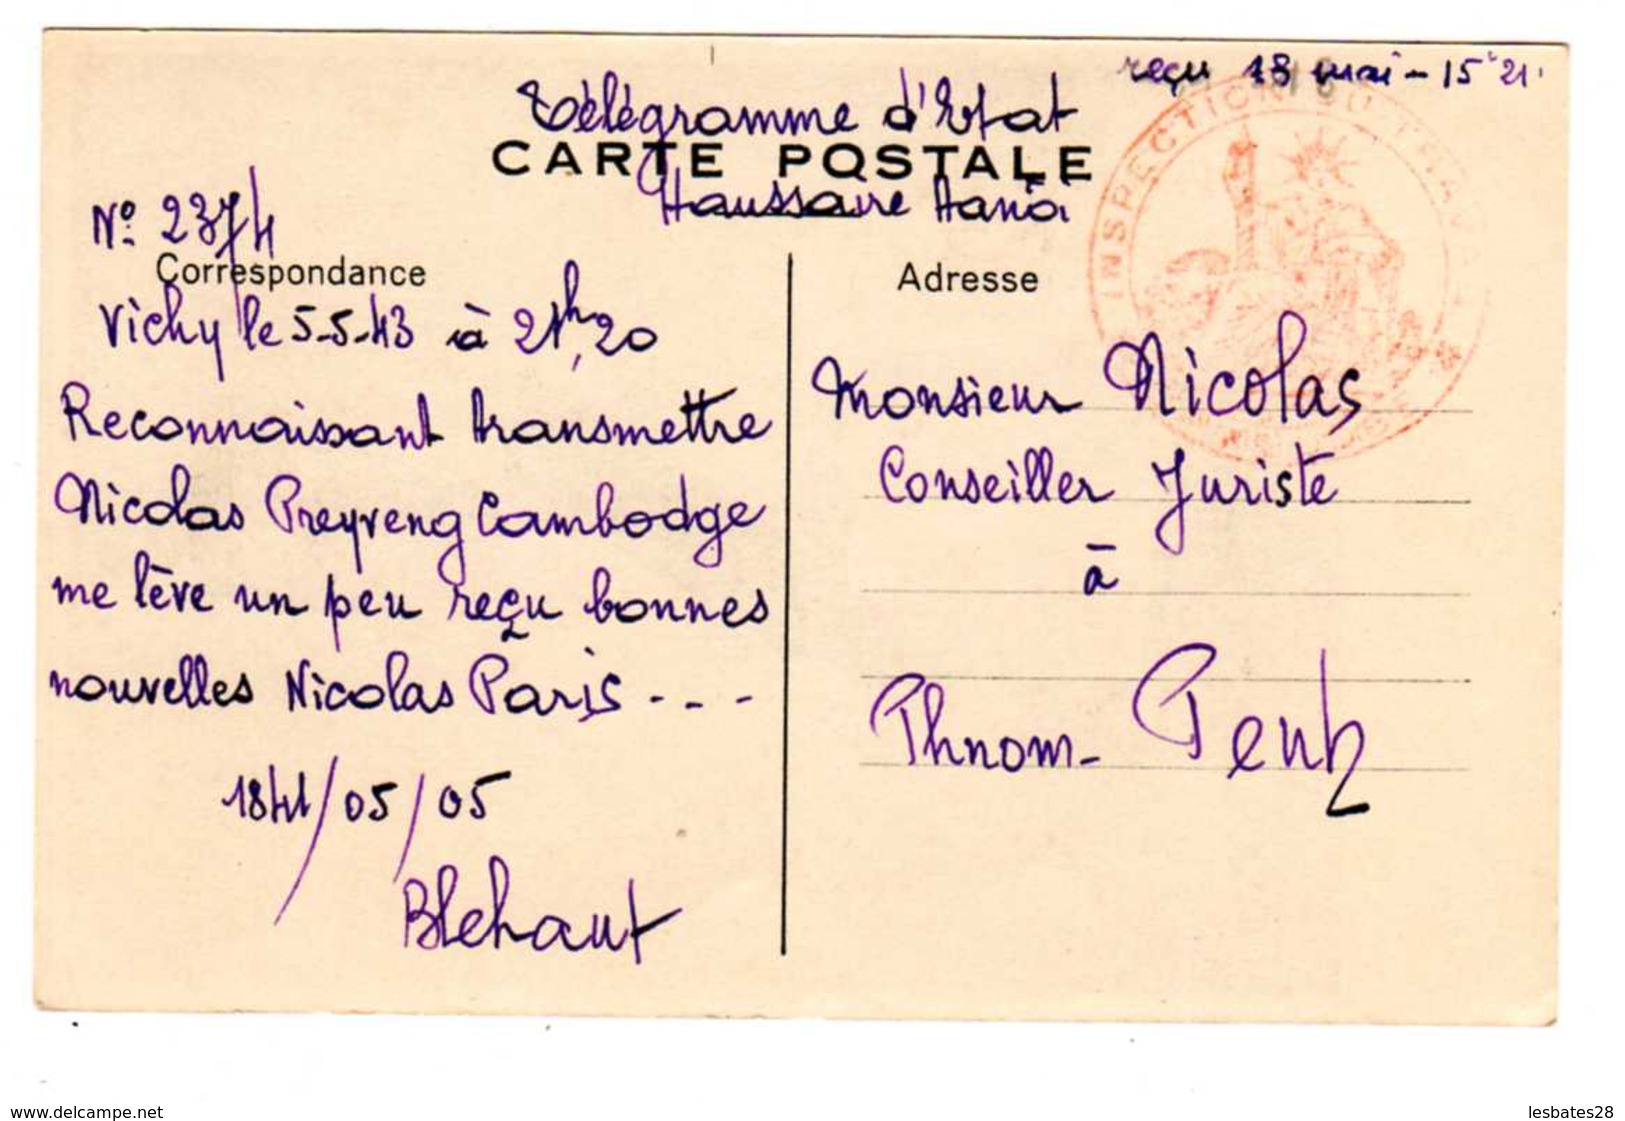 reçu 13 mai - 15h21
Télégramme d'Etat
CARTE POSTALE
Haussaire Hanoi
INSPECTION DU TRAVAIL
N° 2374
Correspondance
Vichy le 5-5-43 à 21h,20
Reconnaissant transmettre
Nicolas Preyveng Cambodge
me lève un peu reçu bonnes
nouvelles Nicolas Paris - - -
1841/05/05
Blehaut
Adresse
Monsieur Nicolas
Conseiller Juriste
à
Phnom-Penh
www.delcampe.net
lesbates28